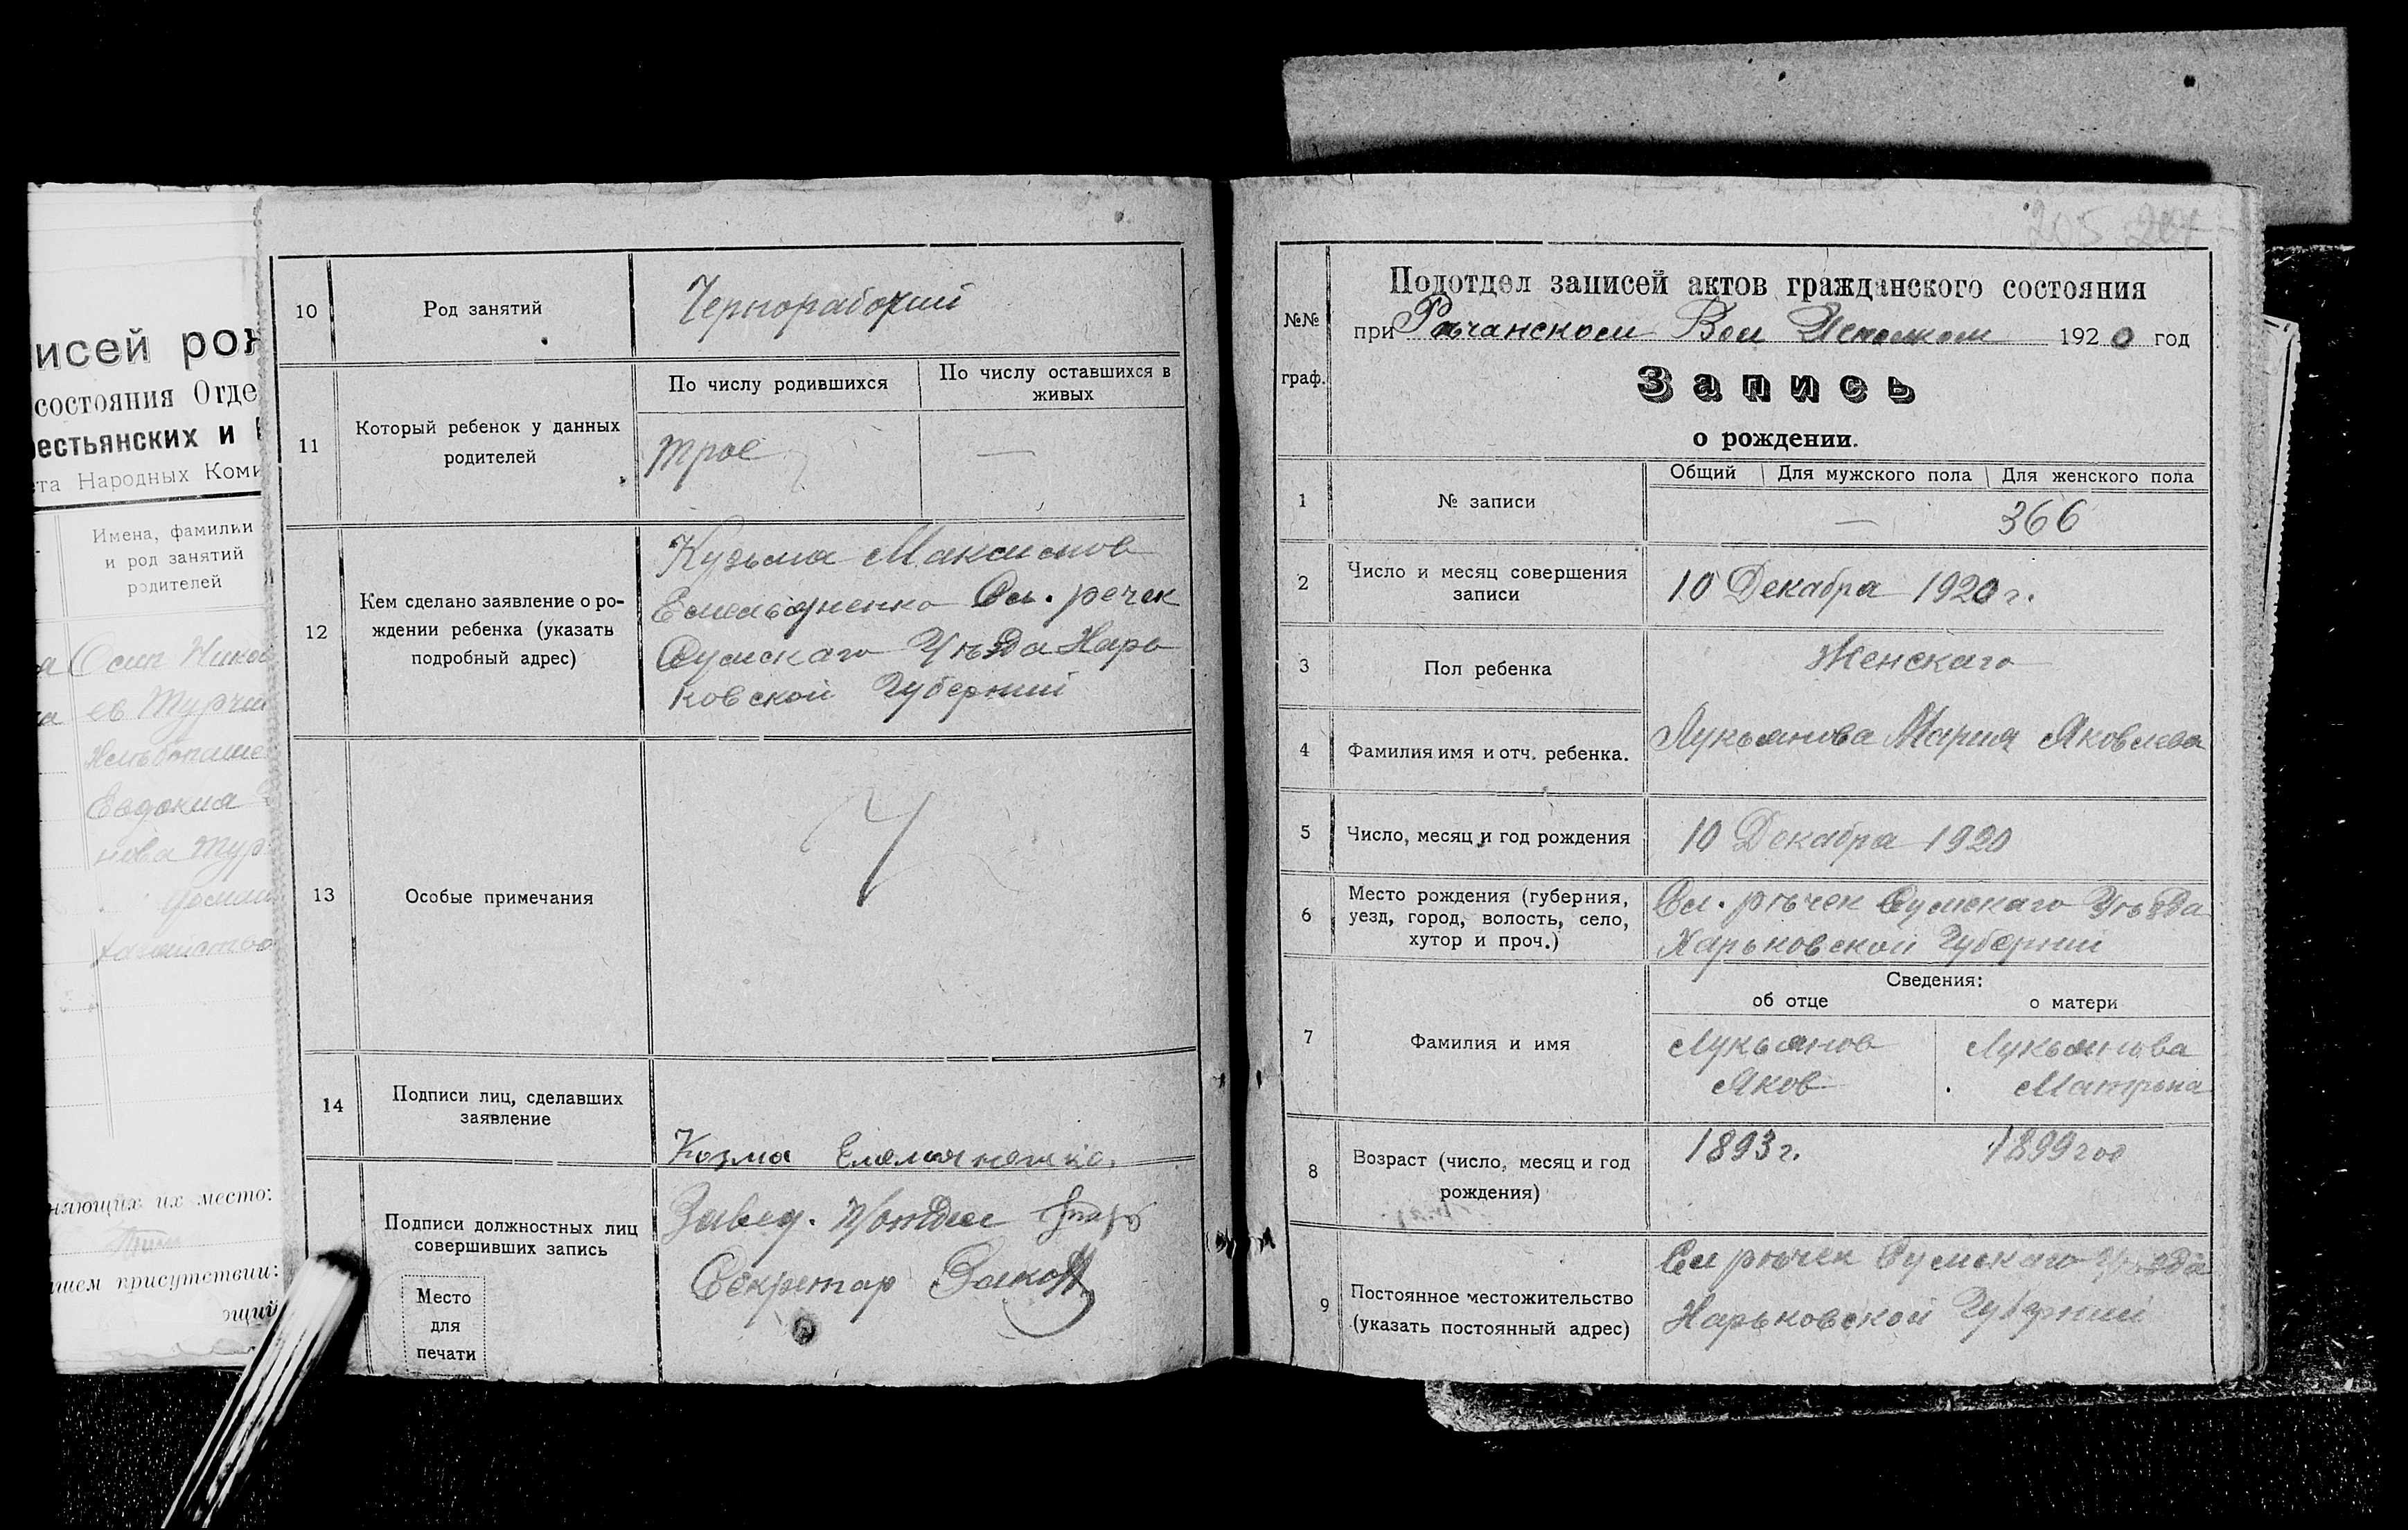 исей рож
состояния Отде
рестьянских и
ета Народных Коми
Имена, фамилии
и род занятий
родителей
а Осип Никол
ев Турчи
Евдокия
нова Тур
няющих их место:
ашем присутствии:
ющий
10 Род занятий Чернорабочий
11 Который ребенок у данных родителей
По числу родившихся По числу оставшихся в живых
трое —
12 Кем сделано заявление о ро-
ждении ребенка (указать
подробный адрес)
Кузьма Максимов
Емельяненко Сл. речек
Сумскаго Уѣзда Харь
ковской Губернии
13 Особые примечания
14 Подписи лиц, сделавших
заявление
Козма Емельяненко.
Подписи должностных лиц
совершивших запись
Завед. П/отдел
Секретар
Место
для
печати
205 204
№№
граф.
Подотдел записей актов гражданского состояния
при Рѣчанском Вол Исполком 1920 год
Запись
о рождении.
1 № записи
Общий Для мужского пола Для женского пола
— 366
2 Число и месяц совершения
записи
10 Декабра 1920 г.
3 Пол ребенка Женскаго
4 Фамилия имя и отч. ребенка. Лукьянова Мария Яковлева
5 Число, месяц и год рождения 10 Декабра 1920
6 Место рождения (губерния,
уезд, город, волость, село,
хутор и проч.)
Сл. рѣчек Сумскаго Уѣзда
Харьковской Губернии
Сведения:
об отце о матери
7 Фамилия и имя
Лукьянов Лукьянова
Яков Матрѣна
8 Возраст (число, месяц и год
рождения)
1893 г. 1899 год
9 Постоянное местожительство
(указать постоянный адрес)
Сл рѣчек Сумскаго Уѣзда
Харьковской Губернии